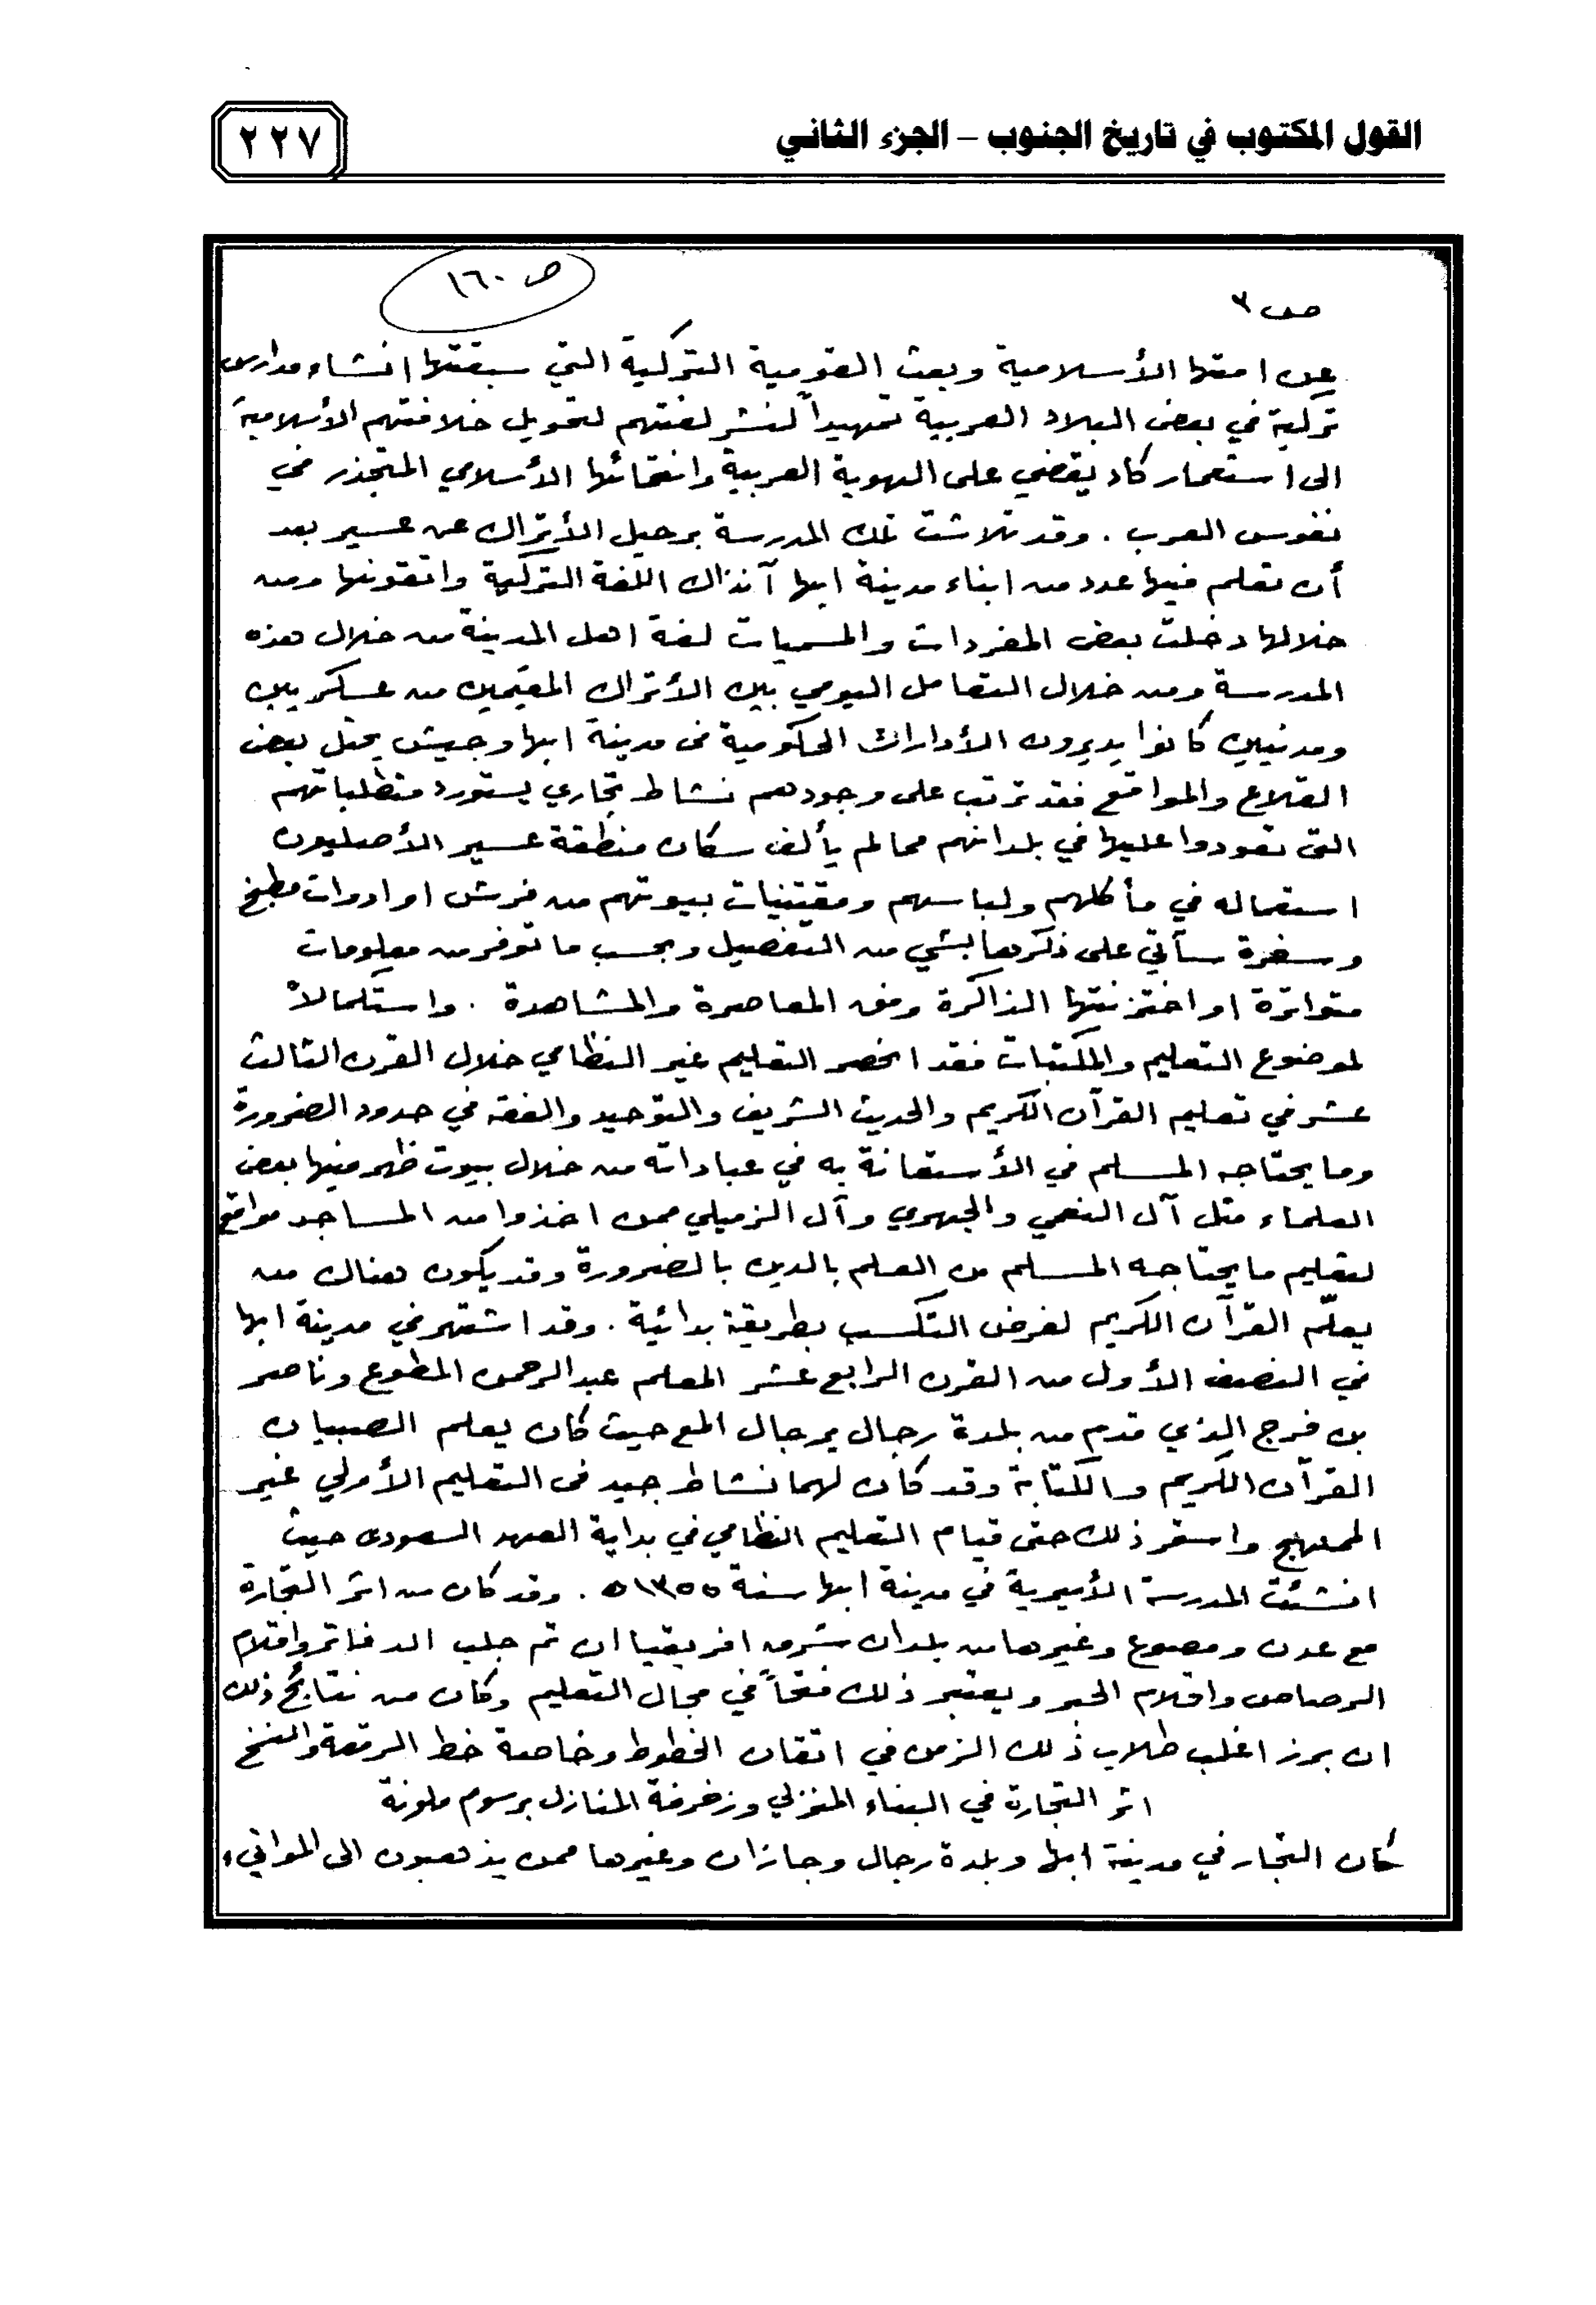 القول المكتوب في تاريخ الجنوب – الجزء الثاني
٢٢٧
ص ١٦٠
ص ٣
عن امتها الأسلامية وبعث القومية التركية التي سبقتها انشاء مدارس
تركية في بعض البلاد العربية تمهيداً لنشر لغتهم لتحويل خلافتهم الأسلامية
الى استعمار كاد يقضي على الهوية العربية وانتمائها الأسلامي المتجذر في
نفوس العرب . وقد تلاشت تلك المدرسة برحيل الأتراك عن عسير بعد
أن تعلم فيها عدد من ابناء مدينة ابها آنذاك اللغة التركية واتقونها ومن
خلالها دخلت بعض المفردات والمسميات لغة اهل المدينة من خلال هذه
المدرسة ومن خلال التعامل اليومي بين الأتراك المقيمين من عسكريين
ومدنيين كانوا يديرون الأدارات الحكومية في مدينة ابها وجيش يحتل بعض
القلاع والمواقع فقد ترتب على وجودهم نشاط تجاري يستورد متطلباتهم
التي تعودوا عليها في بلدانهم مما لم يألف سكان منطقة عسير الأصليون
استعماله في مأكلهم ولباسهم ومقتنيات بيوتهم من فرش او ادوات مطبخ
وسفرة سآتي على ذكرها بشي من التفصيل وبحسب ما توفر من معلومات
متواترة او اختزنتها الذاكرة وفق المعاصرة والمشاهدة . واستكمالاً
لموضوع التعليم والمكتبات فقد انحصر التعليم غير النظامي خلال القرن الثالث
عشر في تعليم القرآن الكريم والحديث الشريف والتوحيد والفقه في حدود الضرورة
وما يحتاجه المسلم في الأستعانة به في عباداته من خلال بيوت ظهر فيها بعض
العلماء مثل آل النعمي والجهري وآل الزميلي ممن اخذوا من المساجد مواقع
لتعليم ما يحتاجه المسلم من العلم بالدين بالضرورة وقد يكون هناك من
يعلّم القرآن الكريم لغرض التكسب بطريقة بدائية . وقد اشتهر في مدينة ابها
في النصف الأول من القرن الرابع عشر المعلم عبدالرحمن المطوع وناصر
بن فرج الذي قدم من بلدة رجال برجال المع حيث كان يعلم الصبيان
القرآن الكريم والكتابة وقد كان لهما نشاط جيد في التعليم الأولي غير
الممنهج واستمر ذلك حتى قيام التعليم النظامي في بداية العهد السعودى حيث
انشئت المدرسة الأميرية في مدينة ابها سنة ١٣٥٥ه . وقد كان من اثر التجارة
مع عدن ومصوع وغيرها من بلدان شرق افريقيا ان تم جلب الدفاتر واقلام
الرصاص واقلام الحبر ويعتبر ذلك فتحاً في مجال التعليم وكان من نتائج ذلك
ان برز اغلب طلاب ذلك الزمن في اتقان الخطوط وخاصة خط الرقعة والنسخ
اثر التجارة في البناء المنزلي وزخرفة المنازل برسوم ملونة
كان التجار في مدينة ابها وبلدة رجال وجازان وغيرها ممن يذهبون الى الموانيء